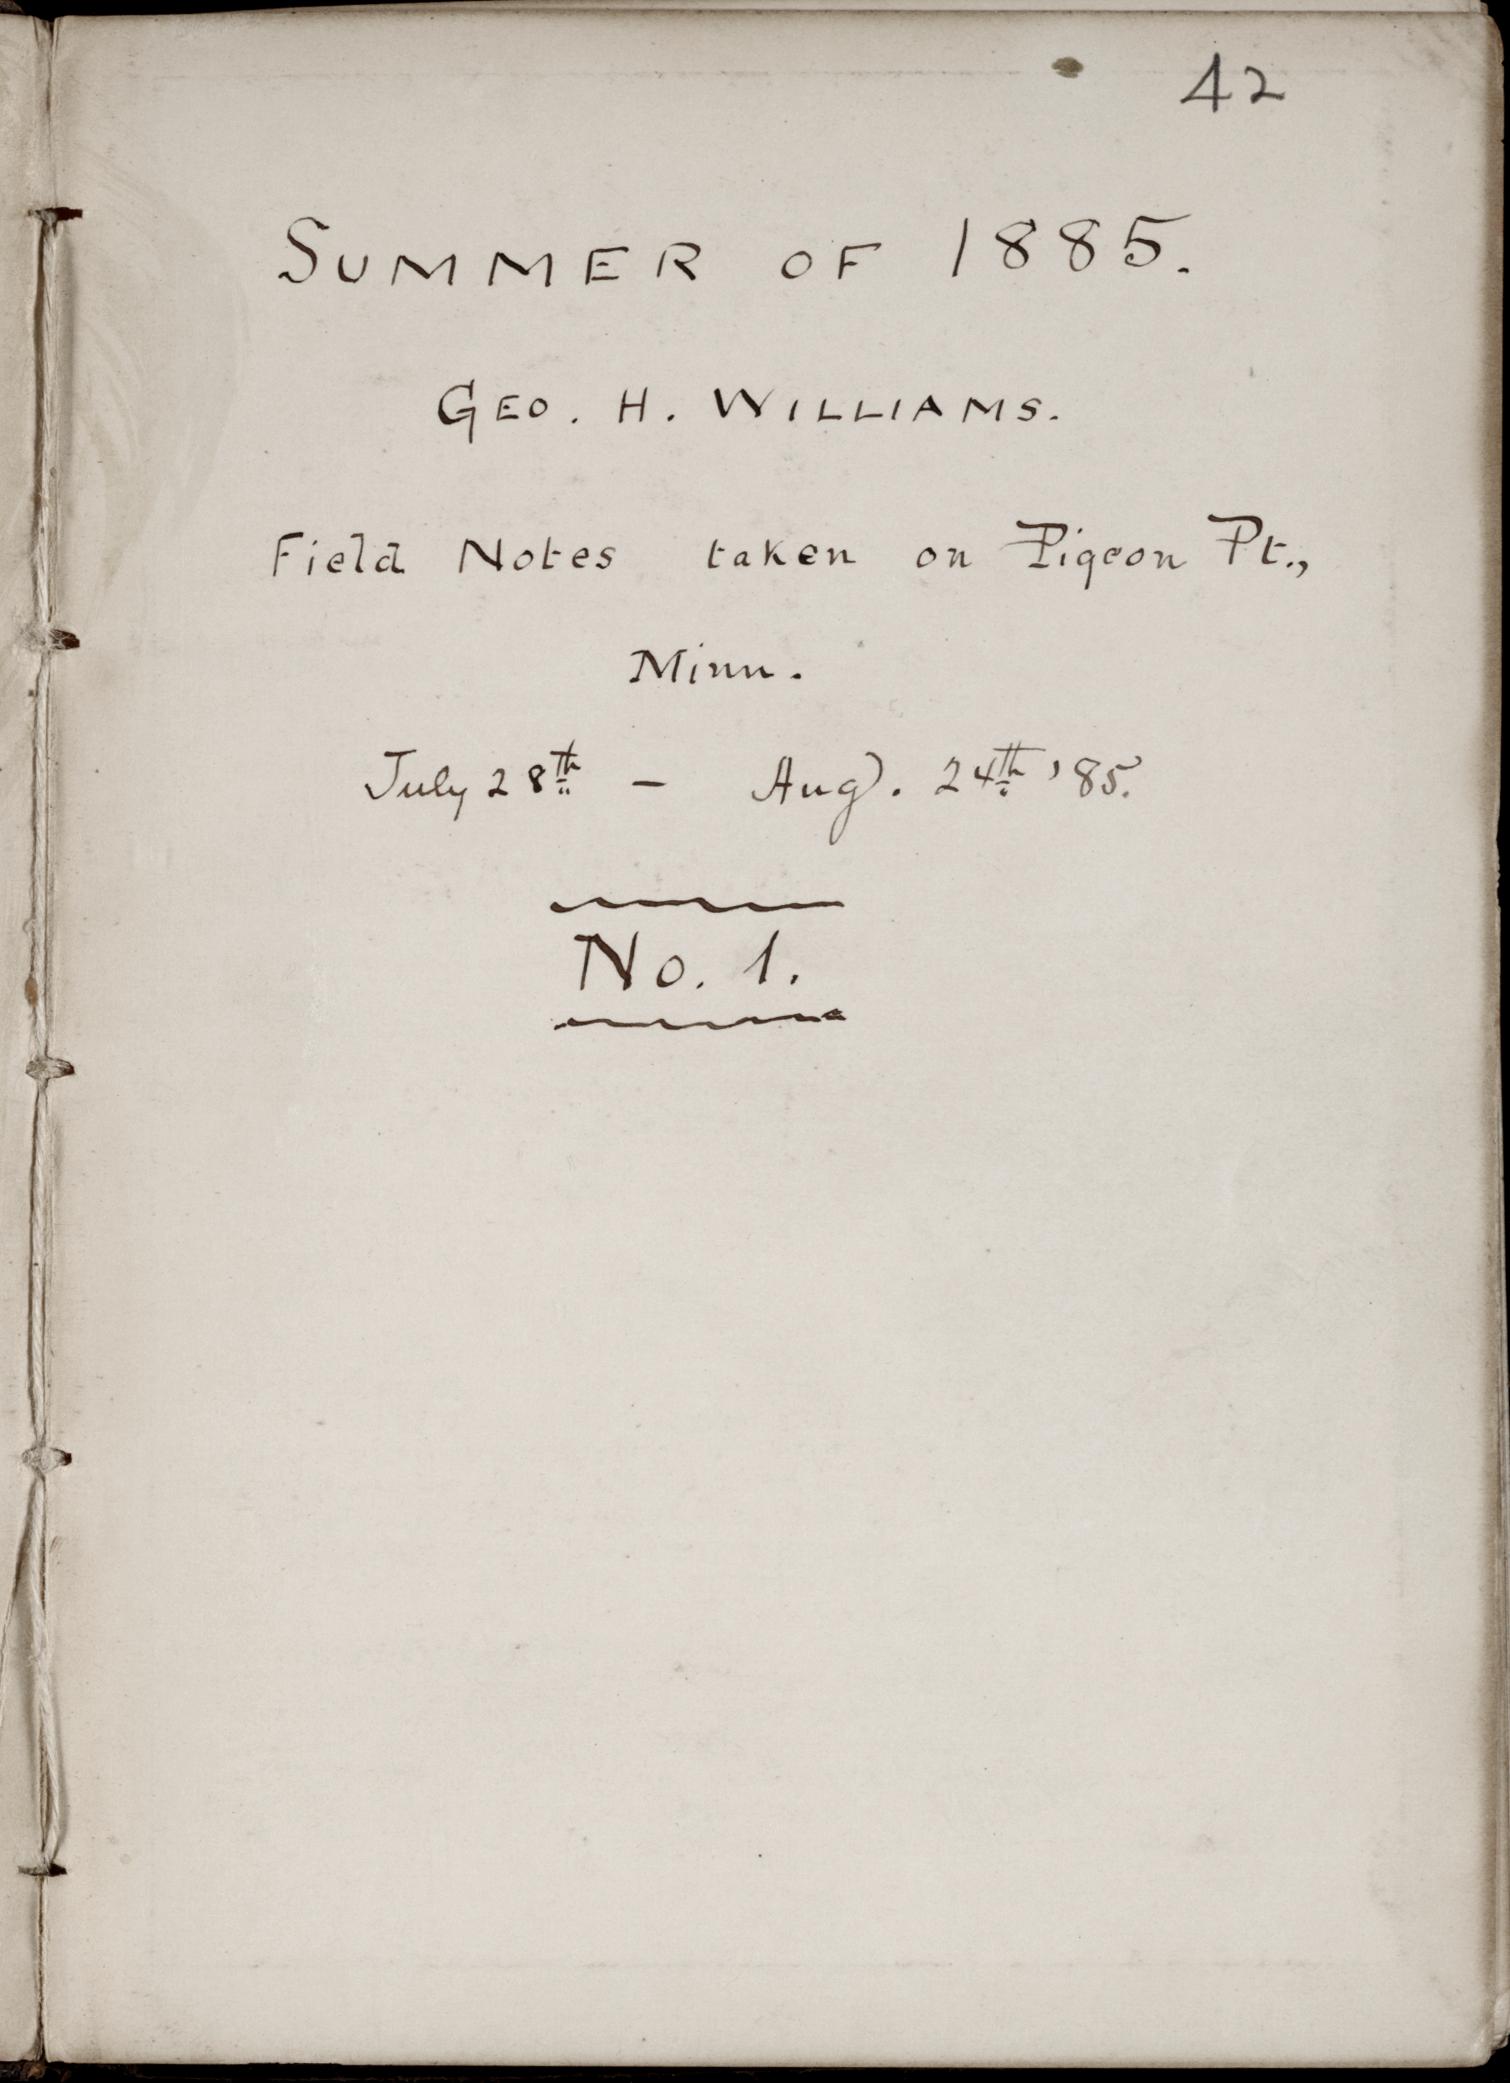 42
SUMMER OF 1885.
GEO. H. WILLIAMS.
Field Notes taken on Pigeon Pt.,
Minn.
July 28th – Aug. 24th '85.
No. 1.